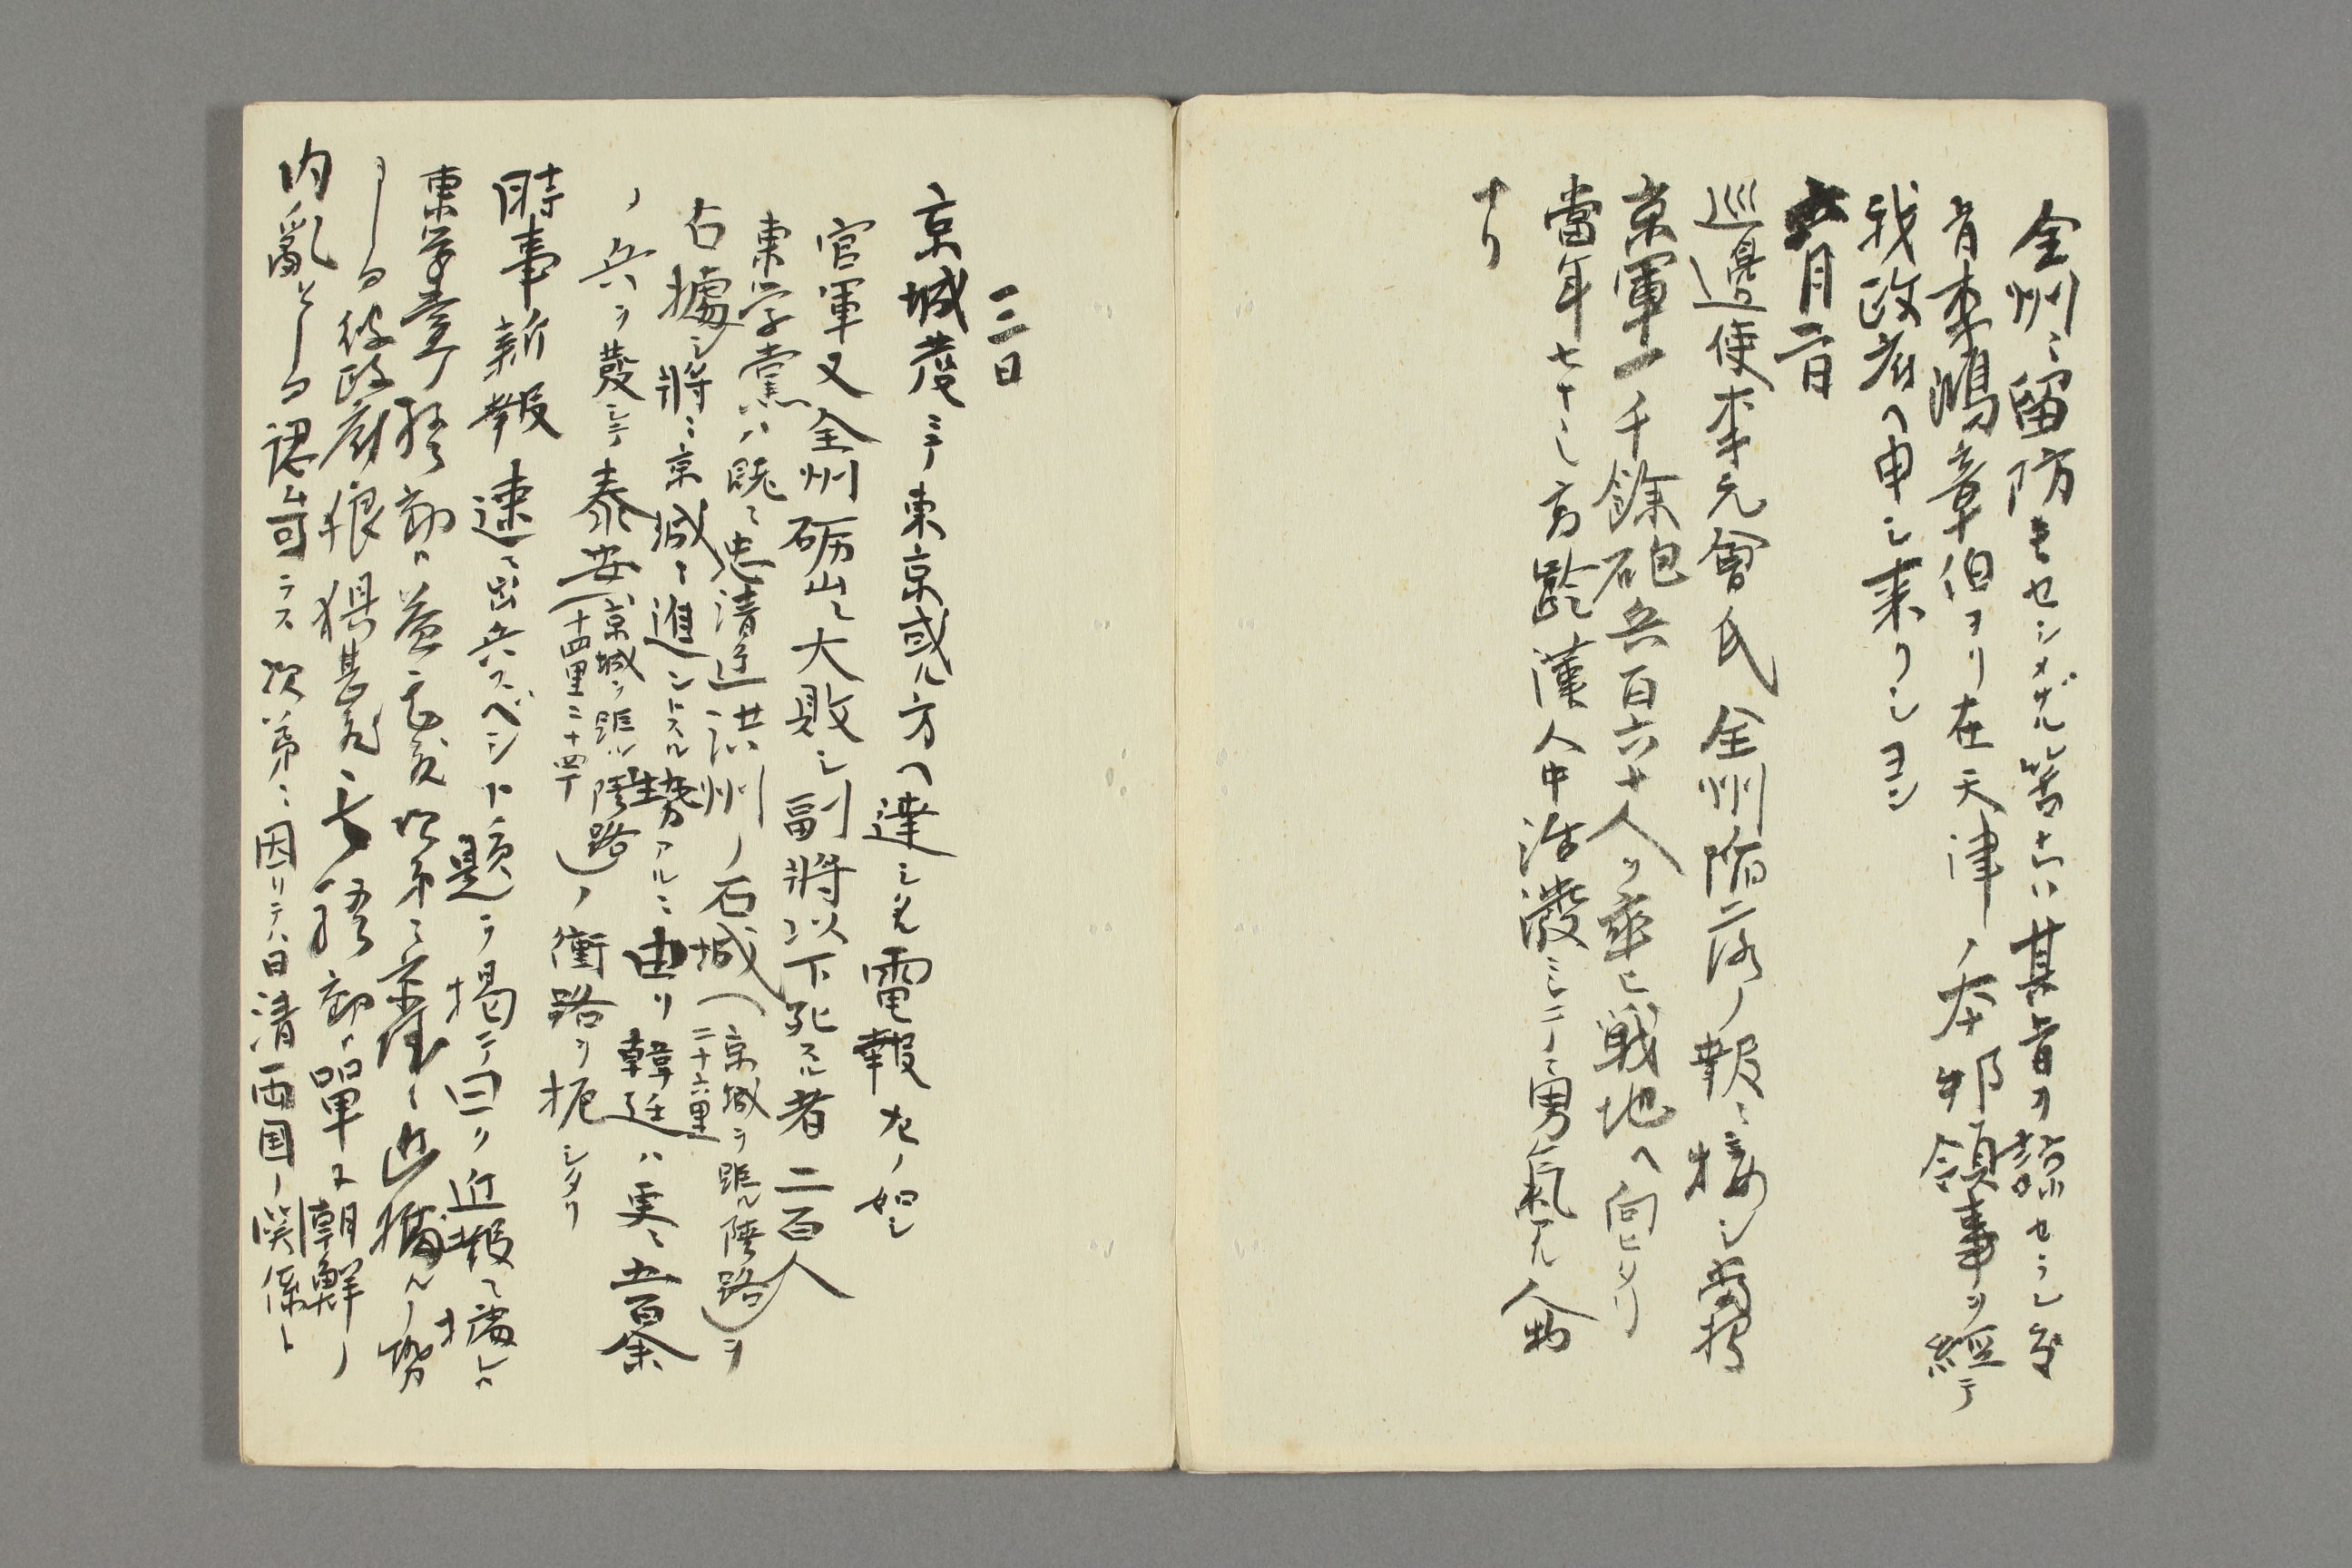 全州ニ留防セシメザル筈ナレバ其旨ヲ諒セラレ度
旨李鴻章伯ヨリ在天津ノ本邦領事ヲ経テ
我政府ヘ申シ来リシヨシ
六月二日
巡邊使李元會氏全州陥落ノ報ニ接シ当損
京軍一千餘砲兵百六十人ヲ率ヒ戦地ヘ向ヒタリ
當年七十ニシ高齢漢人中活溌ニシテ勇氣アル人物
ナリ
三日
京城発ニテ東京或ル方ヘ達シタル電報左ノ如シ
官軍又全州礪山ニ大敗シ副將以下死スル者二百人
東学党ハ既ニ忠清道洪州ノ石城(京城ヲ距ル陸路二十六里)ヲ
占據シ將ニ京城ニ進ントスル勢アルニ由リ韓廷ハ更ニ五百余
ノ兵ヲ發シテ泰安(京城ヲ距ル陸路十四里二十四丁)ノ衝路ヲ扼シタリ
時事新報速ニ出兵スベシト題シテ掲ケテ曰ク近報ニ據レバ
東学黨ノ騒動ハ益々甚敷次第ニ京城ニ近ヅクノ勢
ニシテ政府狼狽甚タシ騒動ハ單ニ朝鮮ノ
内亂トシテ認可キス次第ニ因リテハ日清両国ノ関係ト